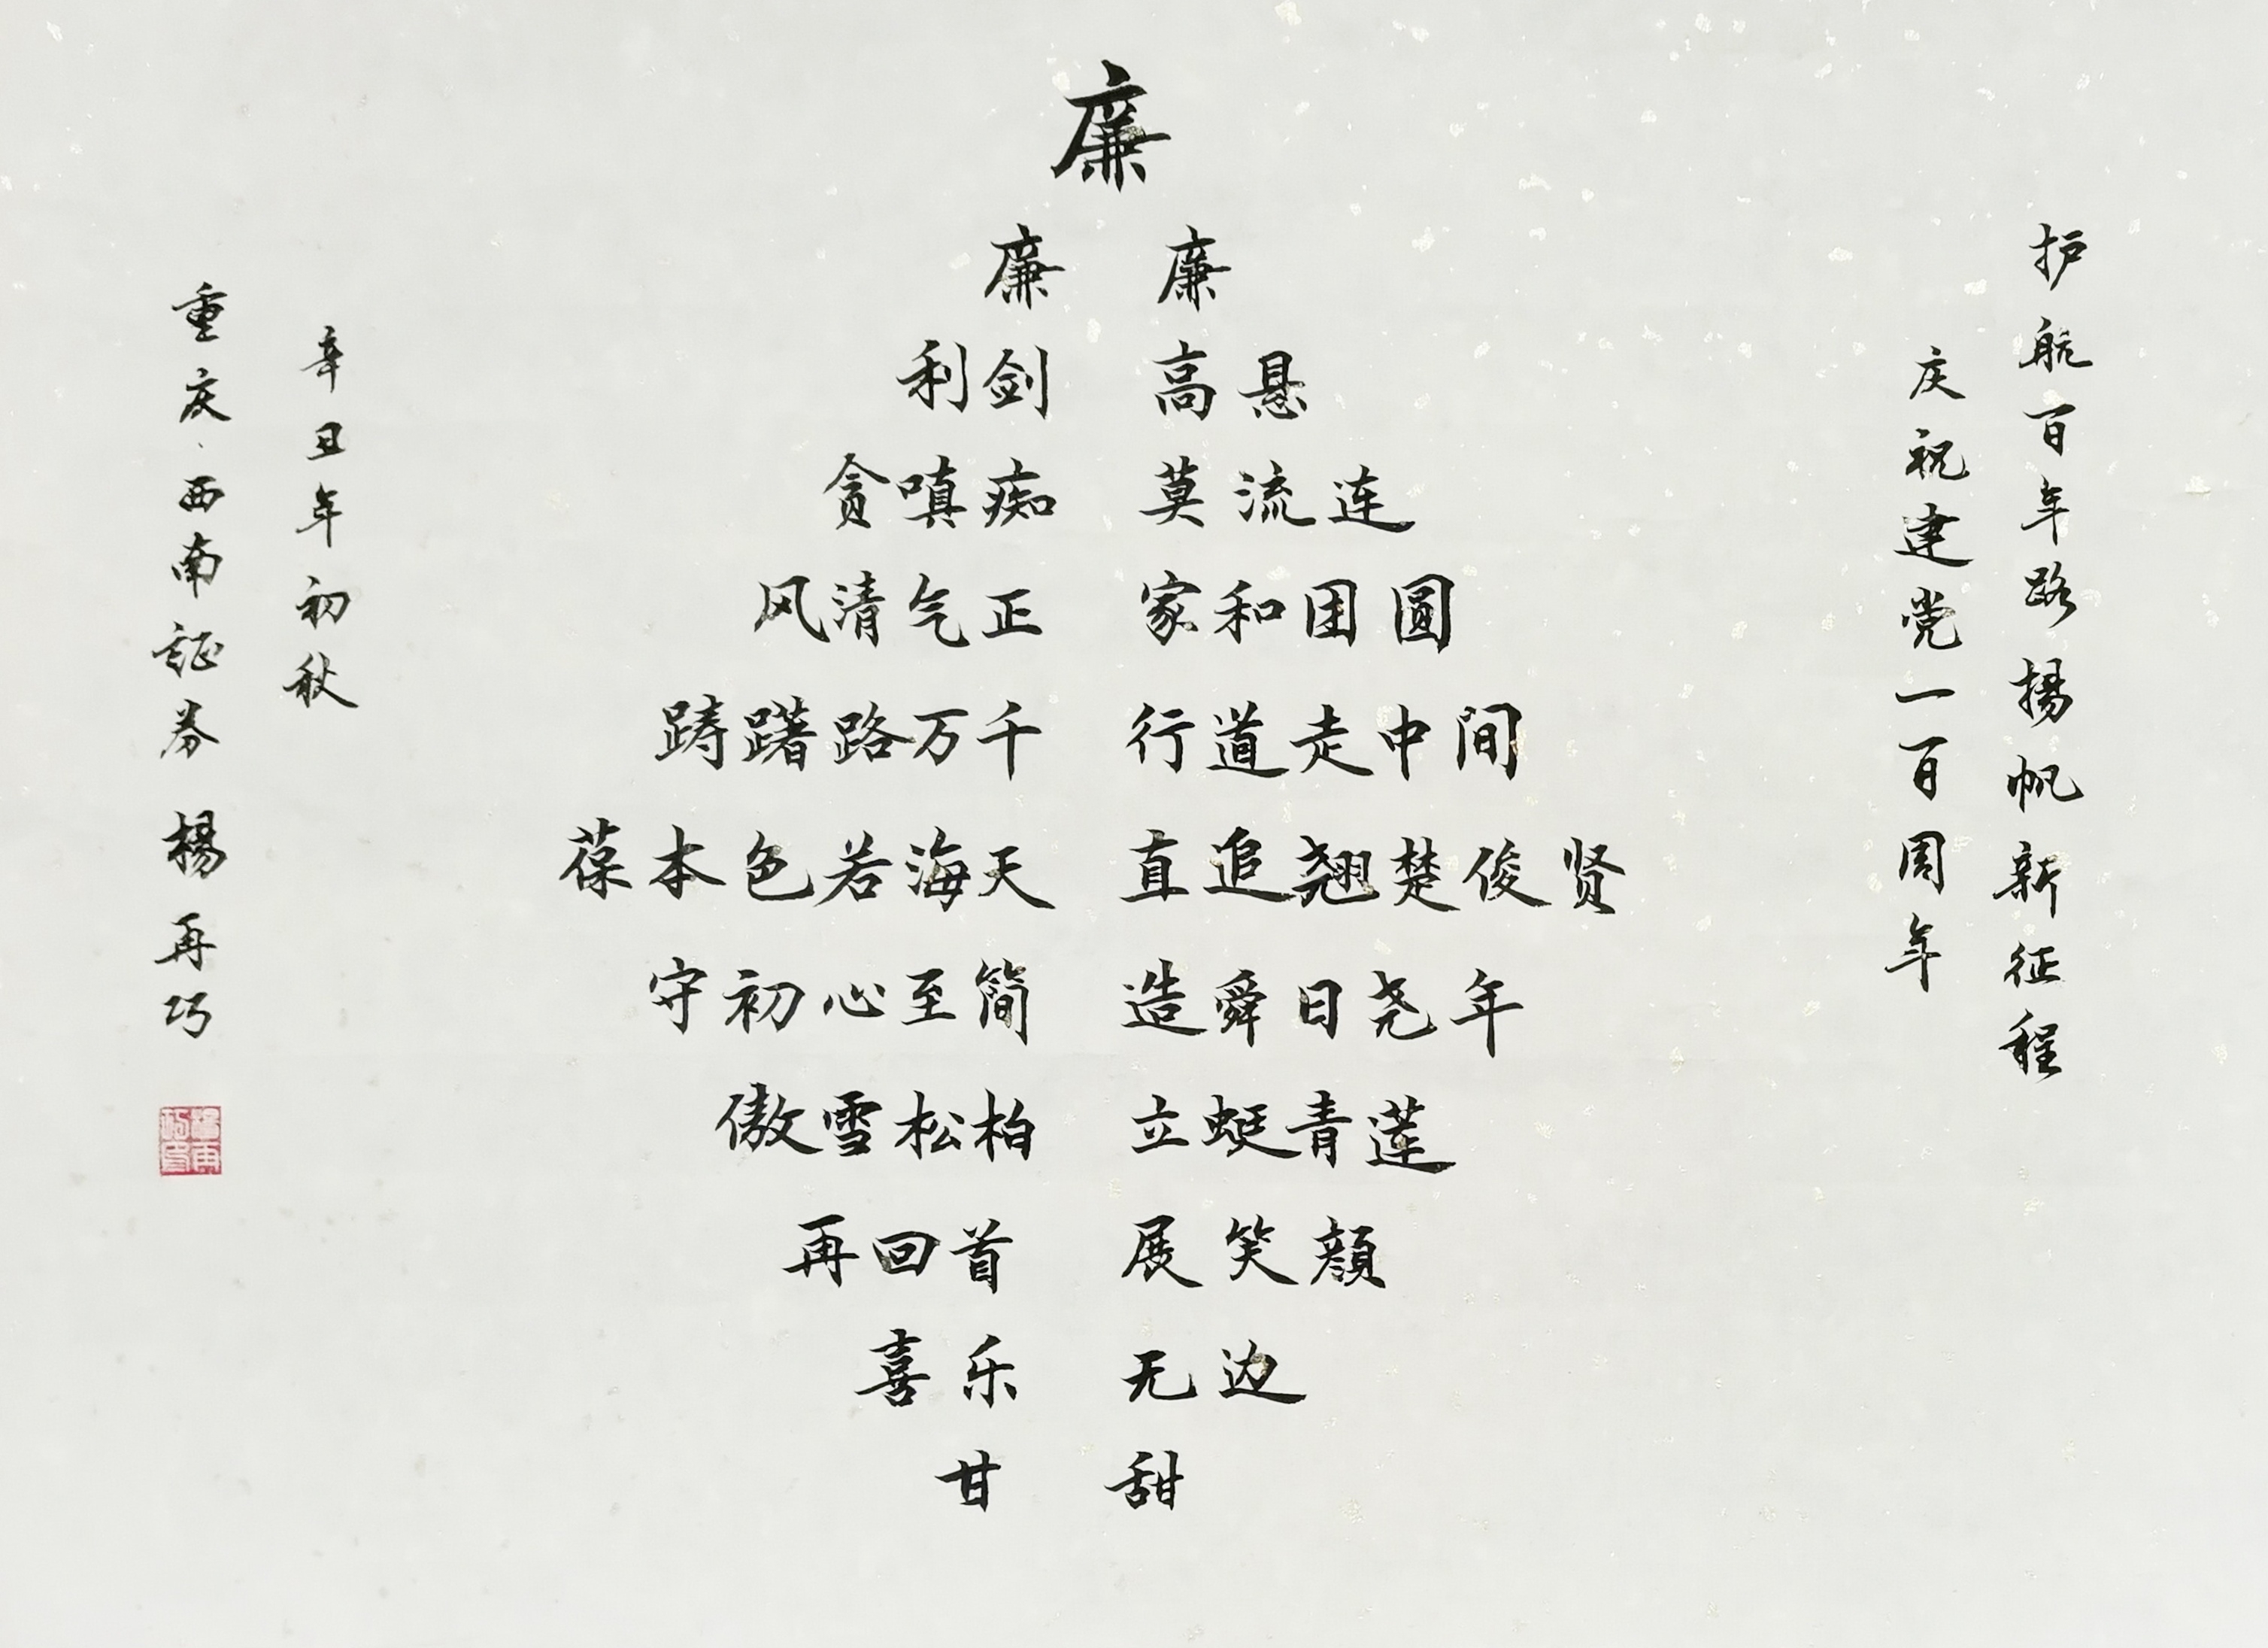 护航百年路揚帆新征程
庆祝建党一百周年
廉
廉 廉
利剑 高悬
贪嗔痴 莫流连
风清气正 家和团圆
踌躇路万千 行道走中间
葆本色若海天 直追翘楚俊贤
守初心至简 造舜日尧年
傲雪松柏 立蜓青莲
再回首 展笑顔
喜乐 无边
甘 甜
辛丑年初秋
重庆·西南証券 楊再巧